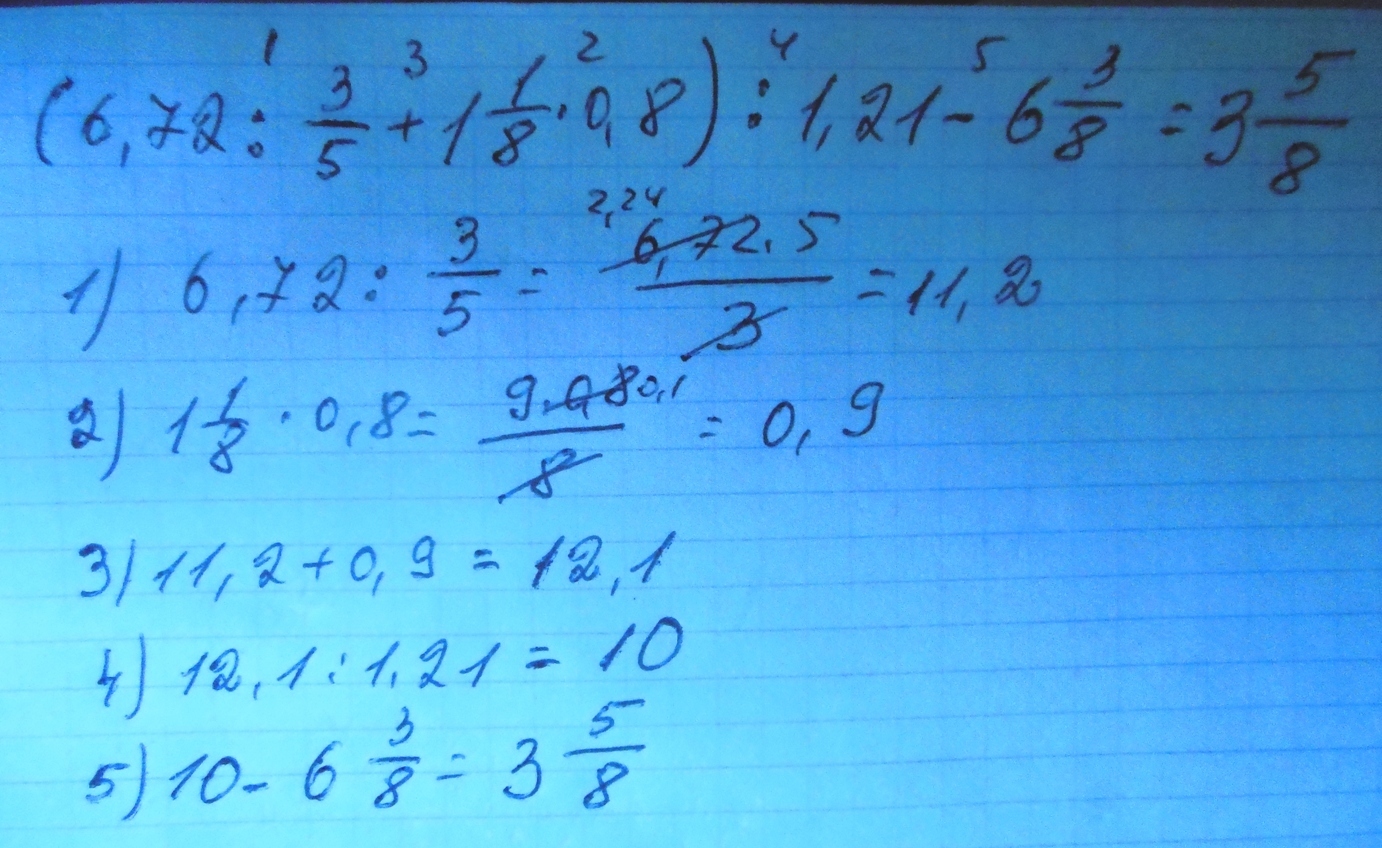 (6,72 : 3/5 + 1 1/8 · 0,8) : 1,21 - 6 3/8 = 3 5/8
1) 6,72 : 3/5 = 6,72 · 5 / 3 = 11,2
2) 1 1/8 · 0,8 = 9 · 0,8 / 8 = 0,9
3) 11,2 + 0,9 = 12,1
4) 12,1 : 1,21 = 10
5) 10 - 6 3/8 = 3 5/8